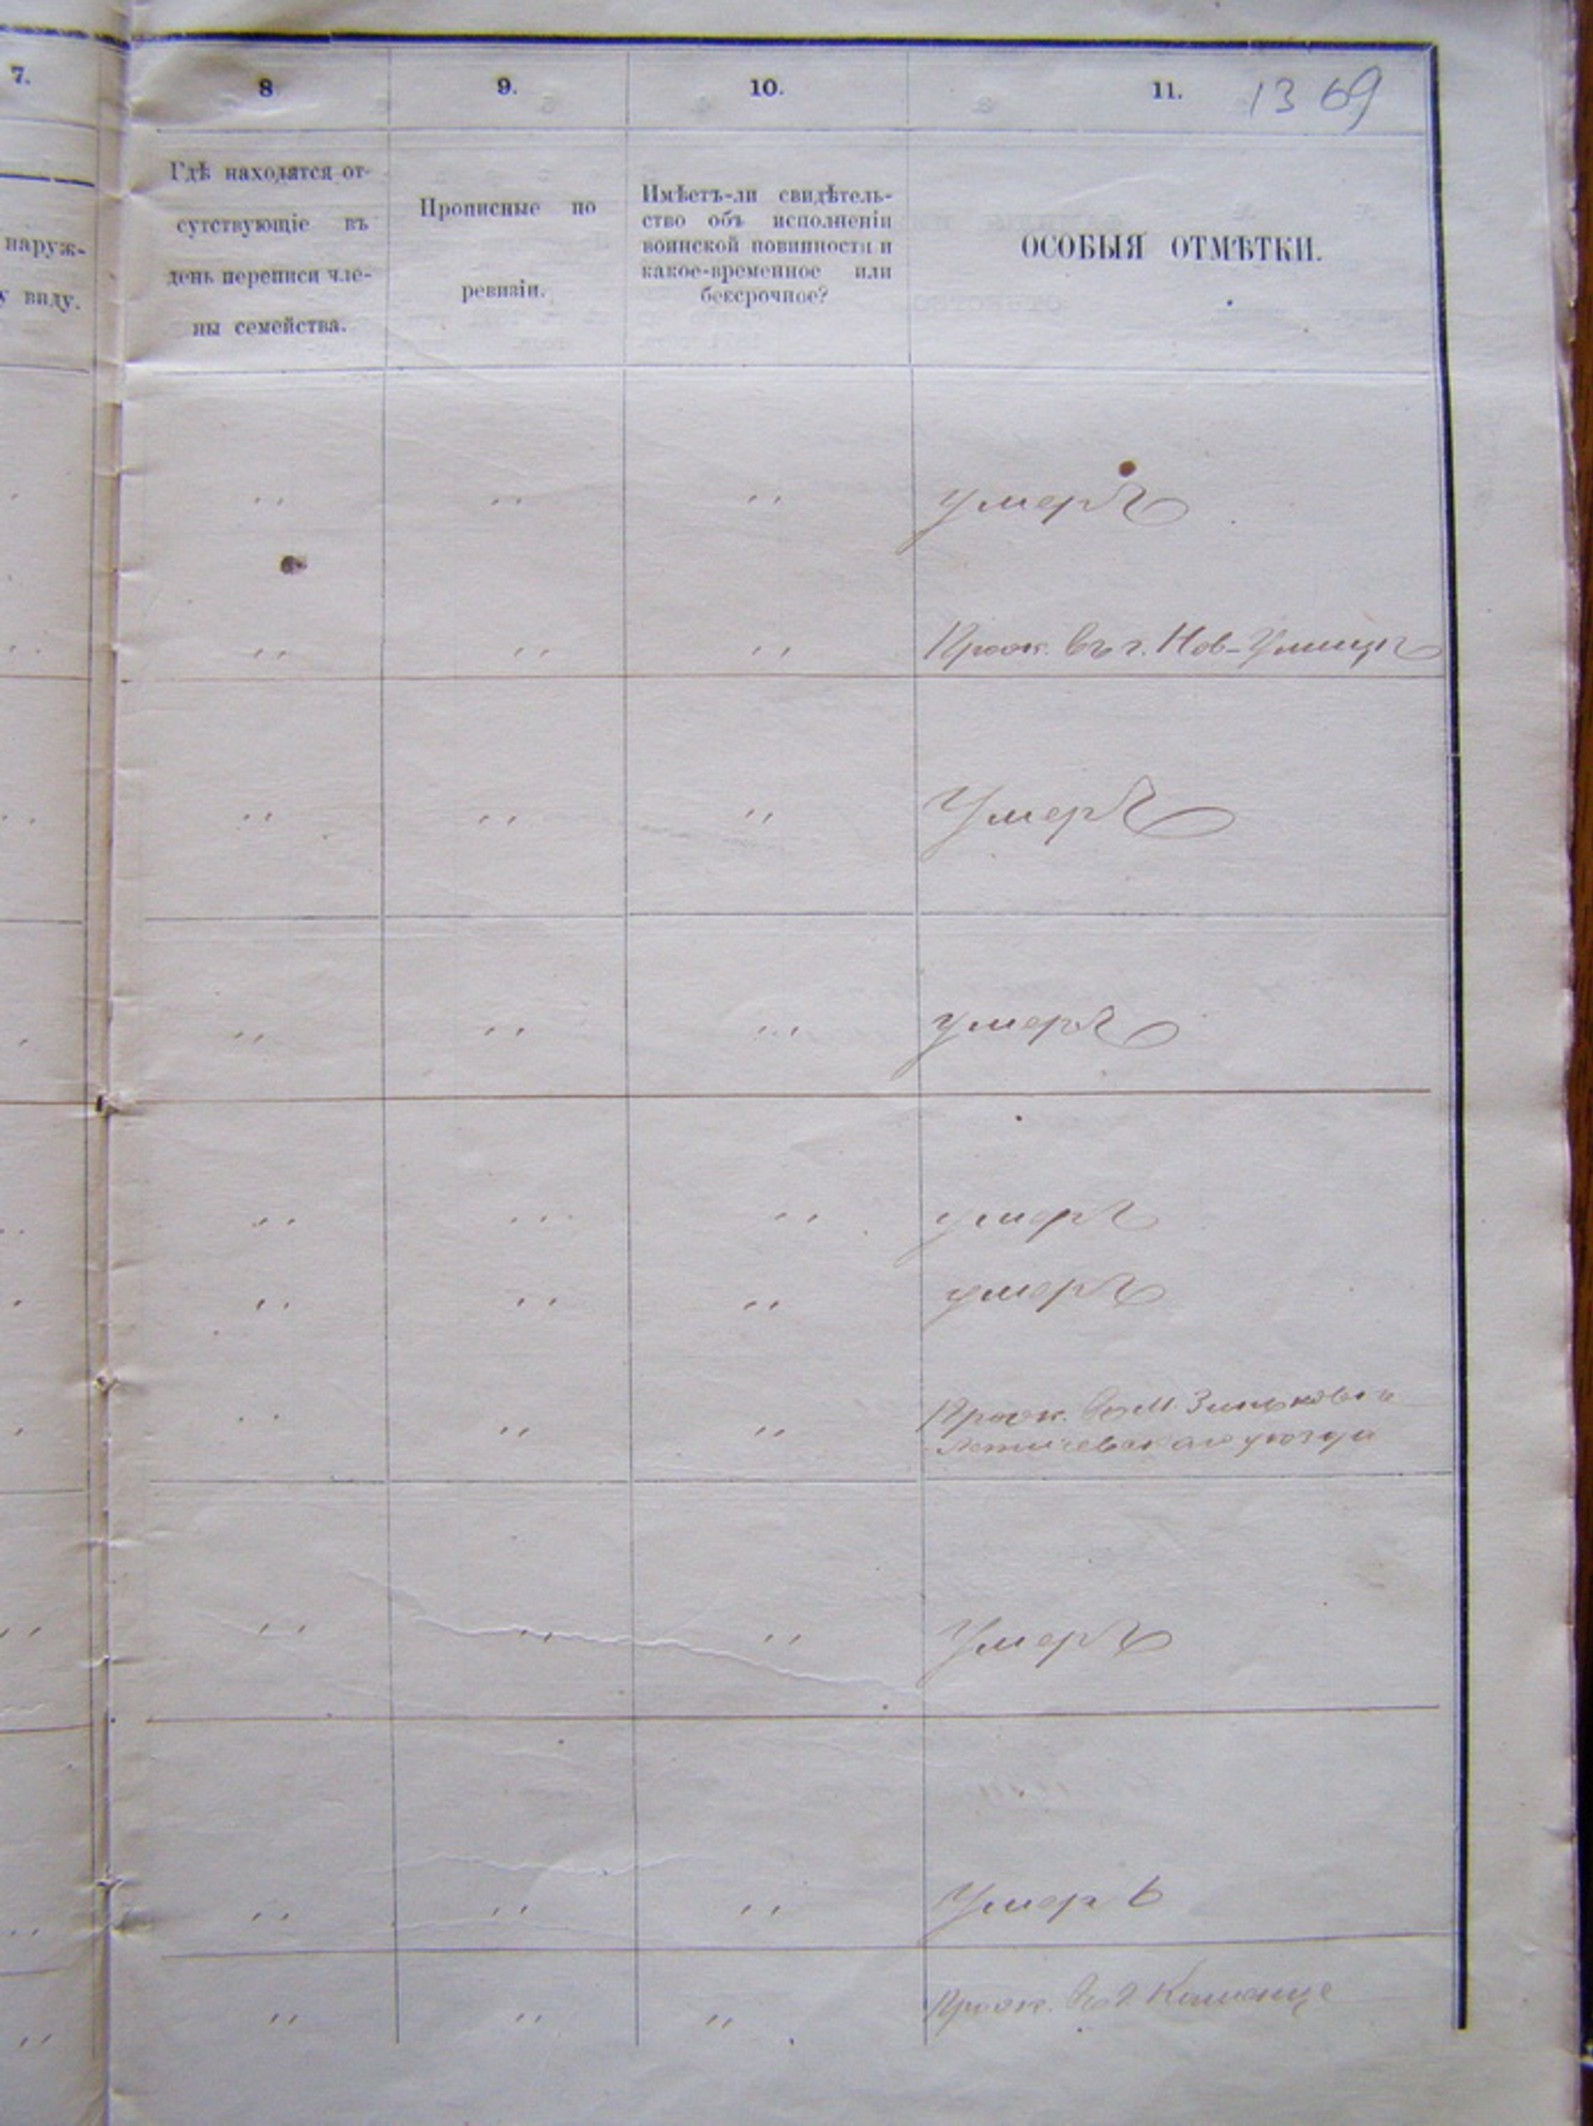 7.
8
9.
10.
11.
1369
наруж-
у виду.
Гдѣ находятся от-
сутствующіе въ
день переписи чле-
ны семейства.
Прописные по
ревизіи.
Имѣетъ-ли свидѣтель-
ство объ исполненіи
воинской повинности и
какое-временное или
безсрочное?
ОСОБЫЯ ОТМѢТКИ.
,, ,, ,, умеръ
,, ,, ,, Прож. въ г. Нов-Ушицѣ
,, ,, ,, Умеръ
,, ,, ,, умеръ
,, ,, ,, умеръ
,, ,, ,, умеръ
,, ,, ,, Прож. въ М. Зиньковѣ
Летичевскаго уѣзда
,, ,, ,, Умеръ
,, ,, ,, Умеръ
,, ,, ,, Прож. въ г. Каменце